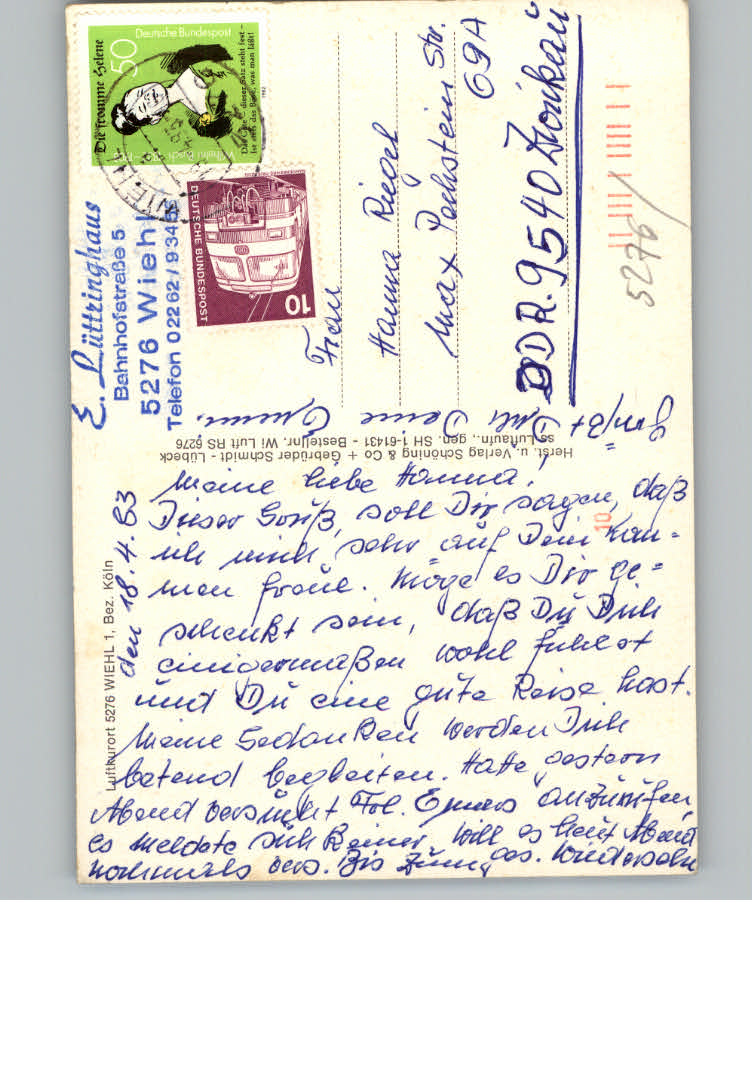 Deutsche Bundespost
50
Die fromme Helene
Das Gute – dieser Satz steht fest –
Ist stets das Böse, was man läßt!
1982
WIEHL
10
DEUTSCHE BUNDESPOST
E. Lüttringhaus
Bahnhofstraße 5
5276 Wiehl
Telefon 02262/9345
Frau
Hanna Riedel
Max Pechstein Str.
69A
DDR. 9540 Zwickau
5276
Herst. u. Verlag Schöning & Co + Gebrüder Schmidt - Lübeck
ss Luftaufn., gen. SH 1-61431 - Bestellnr. Wi Luft RS 6276
Luftkurort 5276 WIEHL 1, Bez. Köln
den 18.4.83
Meine liebe Hanna!
Dieser Gruß, soll Dir sagen, daß
ich mich sehr auf Dein Kom=
men freue. Möge es Dir ge=
schenkt sein, daß Du Dich
einigermaßen wohl fühlst
und Du eine gute Reise hast.
Meine Gedanken werden Dich
betend begleiten. Hatte gestern
Abend versucht Frl. anzurufen,
es meldete sich Keiner, will es heut Abend
nochmals vers. Bis zum ges. Wiedersehn
grüßt Dich Deine
10